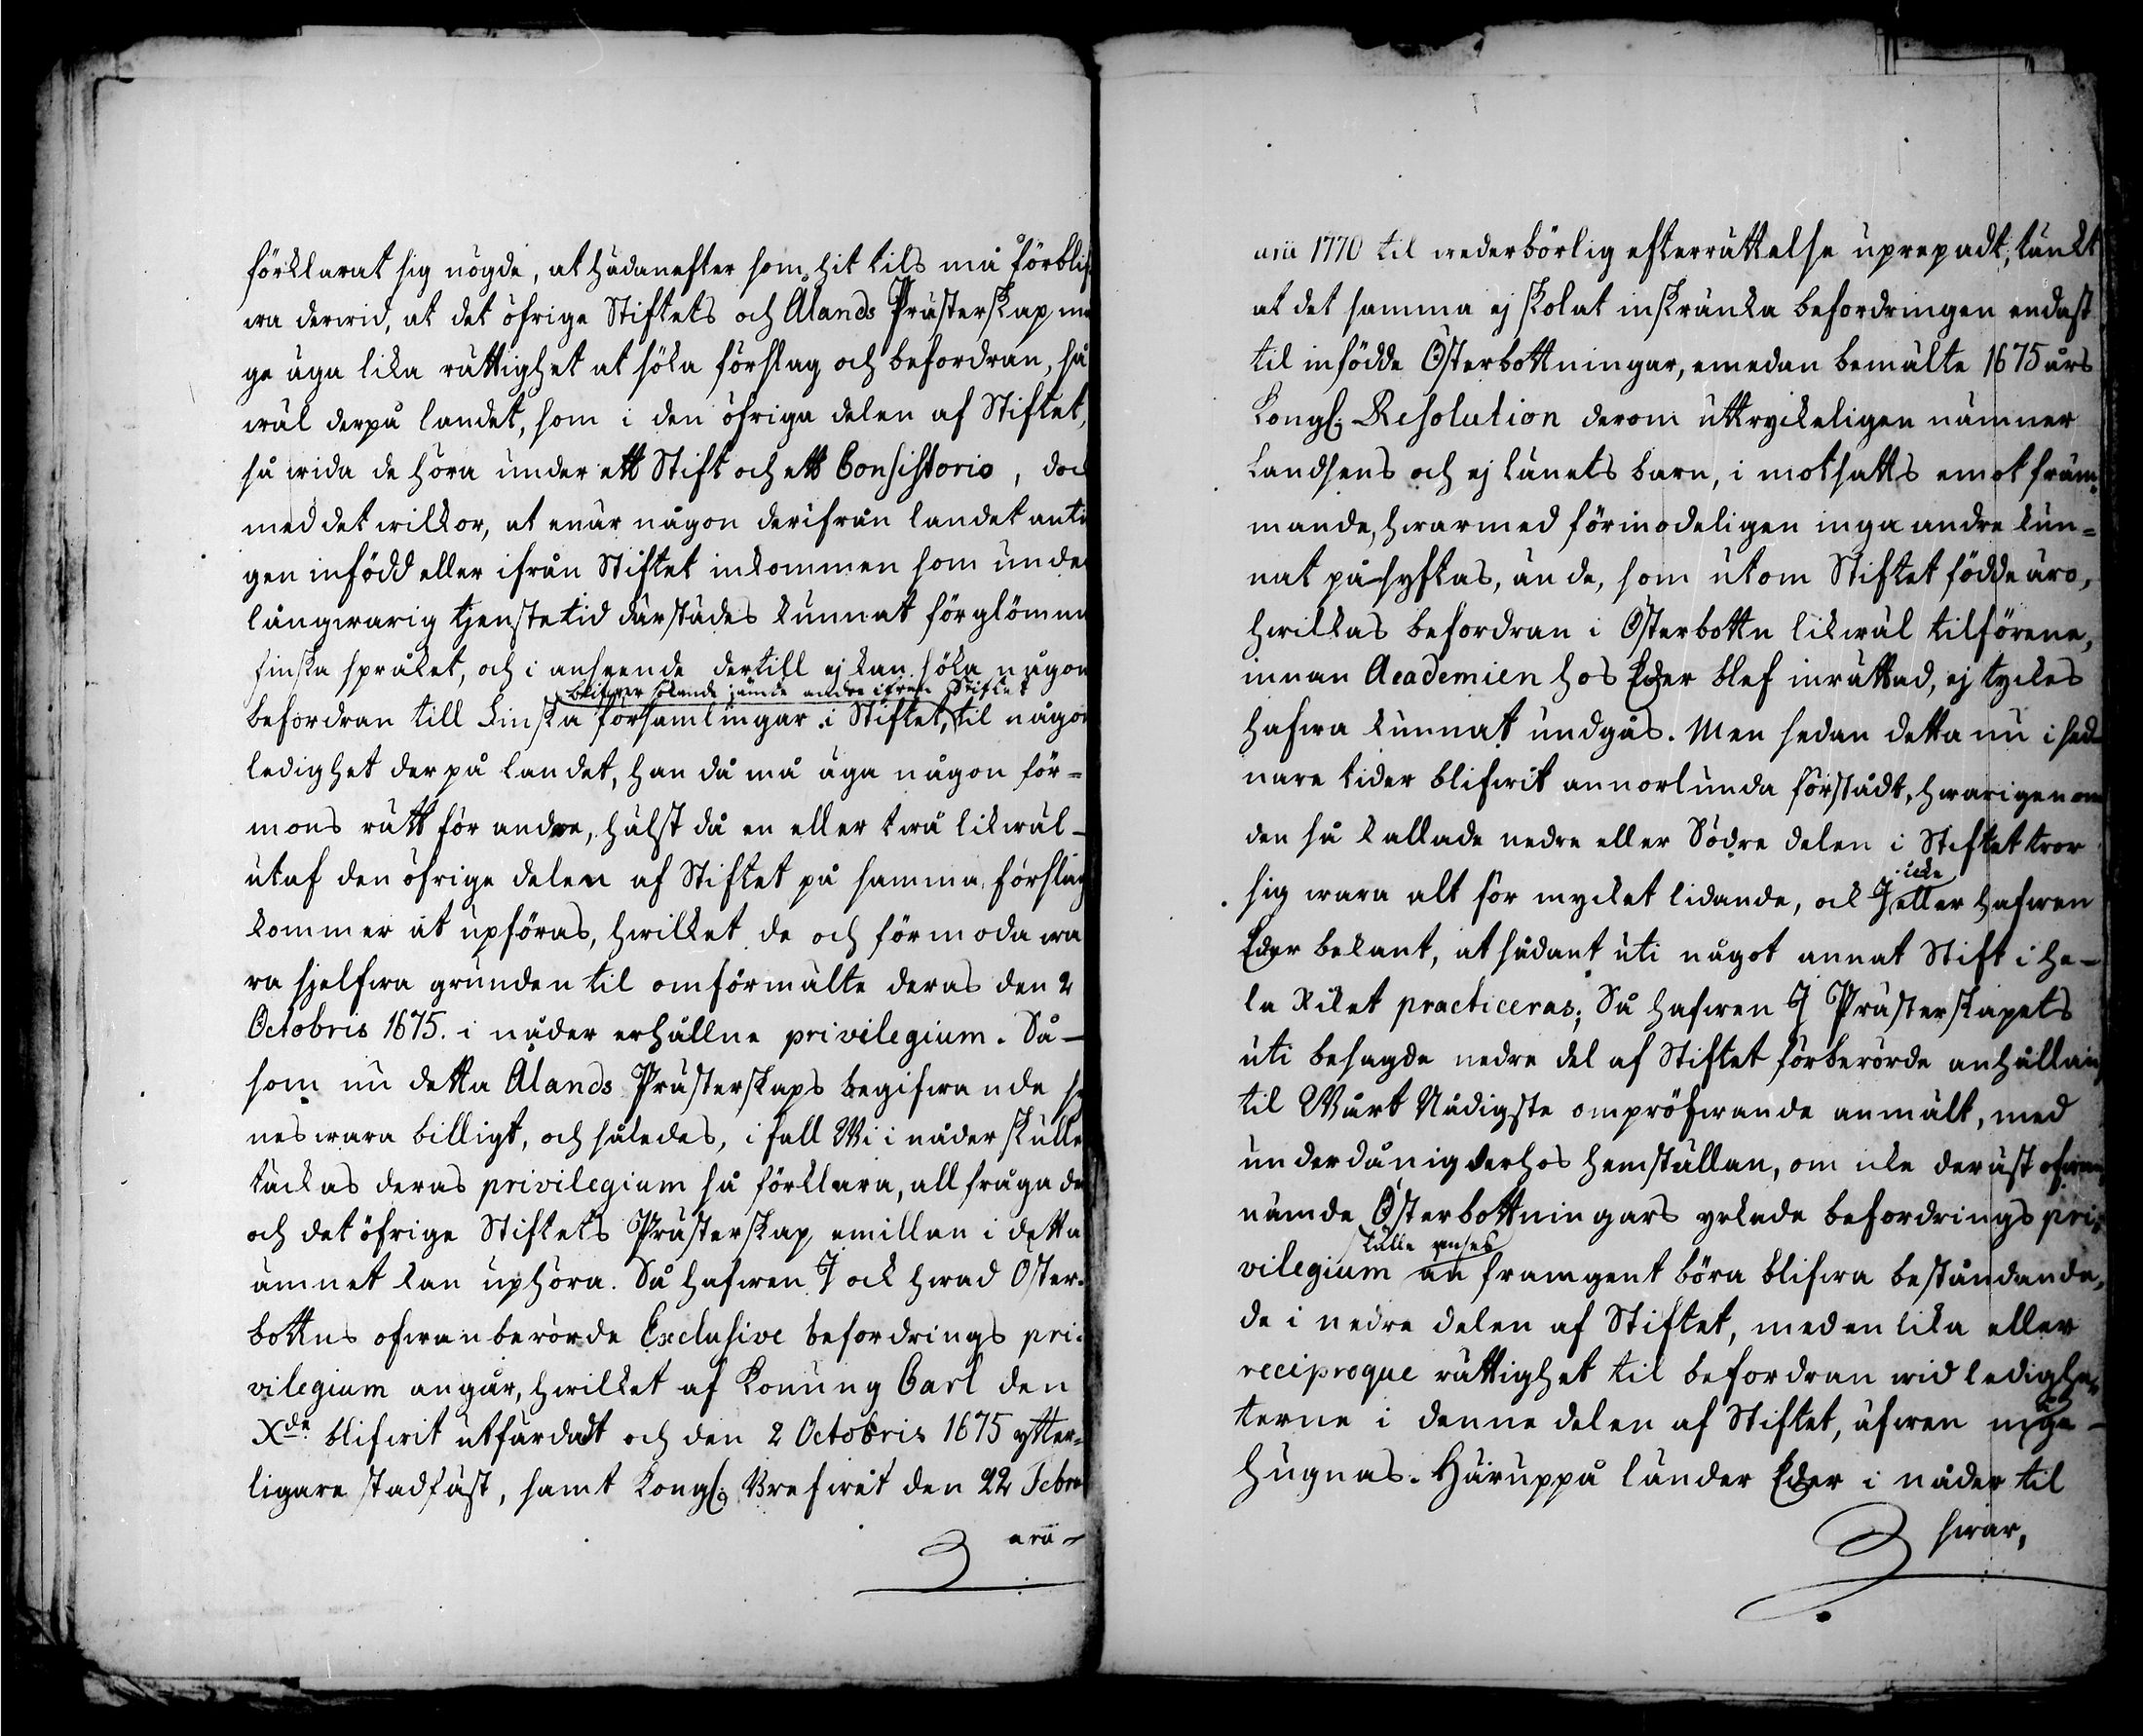 förklarat sig nögde, at hädanefter som hit tils må förblif
wa derwid, at det öfrige Stiftets och Ålands Prästerskap må
ge äga lika rättighet at söka förslag och befordran, så
wäl derpå landet, som i den öfriga delen af Stiftet,
så wida de höra under ett Stift och ett Consistorio, dock
med det wilkor, at enär någon derifrån landet anti
gen infödd eller ifrån Stiftet inkommen som under
långwarig tjenstetid därstädes kunnat förglömma
finska språket, och i anseende dertill ej kan söka någon
blifwer sökande jämte andre ifrån Stiftet
befordran till Finska församlingar i Stiftet, til någon
ledighet derpå landet, han då må äga någon för-
mons rätt för andre, hälst då en eller twå likwäl
utaf den öfrige delen af Stiftet på samma förslag
kommer at upföras, hwilket de och förmoda wa
ra sjelfwa grunden til omförmälte deras den 2
Octobris 1675. i nåder erhållne privilegium. Så-
som nu detta Ålands Prästerskaps begifwande sy
nes wara billigt, och således, i fall Wi i nåder skulle
täckas deras privilegium så förklara, all fråga dem
och det öfrige Stiftets Prästerskap emillan i detta
ämnet kan uphöra. Så hafwen I ock hwad Öster-
bottns ofwanberörde Exclusive befordrings pri-
vilegium angår, hwilket af Konung Carl den
X:de blifwit utfärdadt och den 2 Octobris 1675 ytter-
ligare stadfäst, samt Kongl. Brefwet den 22 Febru
arii-
arii 1770 til wederbörlig efterrättelse uprepadt, tänkt
at det samma ej skolat inskränka befordringen endast
til infödde Österbottningar, emedan bemälte 1675 års
Kongl. Resolution derom uttryckeligen nämner
Landsens och ej Länets barn, i motsatts emot främ-
mande, hwarmed förmodeligen inga andre kun-
nat påsyftas, än de, som utom Stiftet födde äro,
hwilkas befordran i Österbottn likwäl tilförene,
innan Academien hos Eder blef inrättad, ej tyckes
hafwa kunnat undgås. Men sedan detta nu i sed-
nare tider blifwit annorlunda förstådt, hwarigenom
den så kallade nedre eller Södre delen i Stiftet tror
icke
sig wara alt för mycket lidande, ock I eller hafwen
Eder bekant, at sådant uti något annat Stift i he-
la Riket practiceras; Så hafwen I Prästerskapets
uti besagde nedre del af Stiftet förberörde anhållan
til Wårt Nådigste ompröfwande anmält, med
underdånig derhos hemställan, om icke deräst ofwan
nämde Österbottningars yrkade befordrings pri-
skulle anses
vilegium än framgent böra blifwa beståndande,
de i nedre delen af Stiftet, med en lika eller
reciproque rättighet til befordran wid ledighe-
terne i denne delen af Stiftet, äfwen måge
hugnas. Häruppå länder Eder i nåder til
swar,